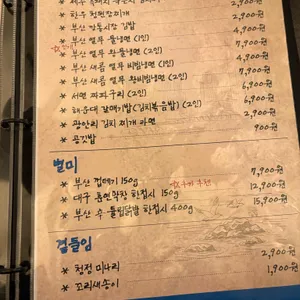 한우 청된장찌개 2,900원
부산 깡통시장 김밥 2,900원
부산 열무 물냉면 (1인) 7,900원
부산 열무 왕물냉면 (2인) 4,900원
부산 새콤 열무 비빔냉면 (1인) 7,900원
부산 새콤 열무 왕비빔냉면 (2인) 4,900원
서면 파파구리 (2인) 6,900원
해운대 갈매기밥 (김치볶음밥) (2인) 6,900원
광안리 김치 찌개 라면 2,900원
공깃밥 900원
별미
부산 껍데기 150g 7,900원
대구 통연막창 한접시 150g 12,900원
한접시 400g 15,900원
곁들임
청정 미나리 2,900원
꼬리새송이 1,900원